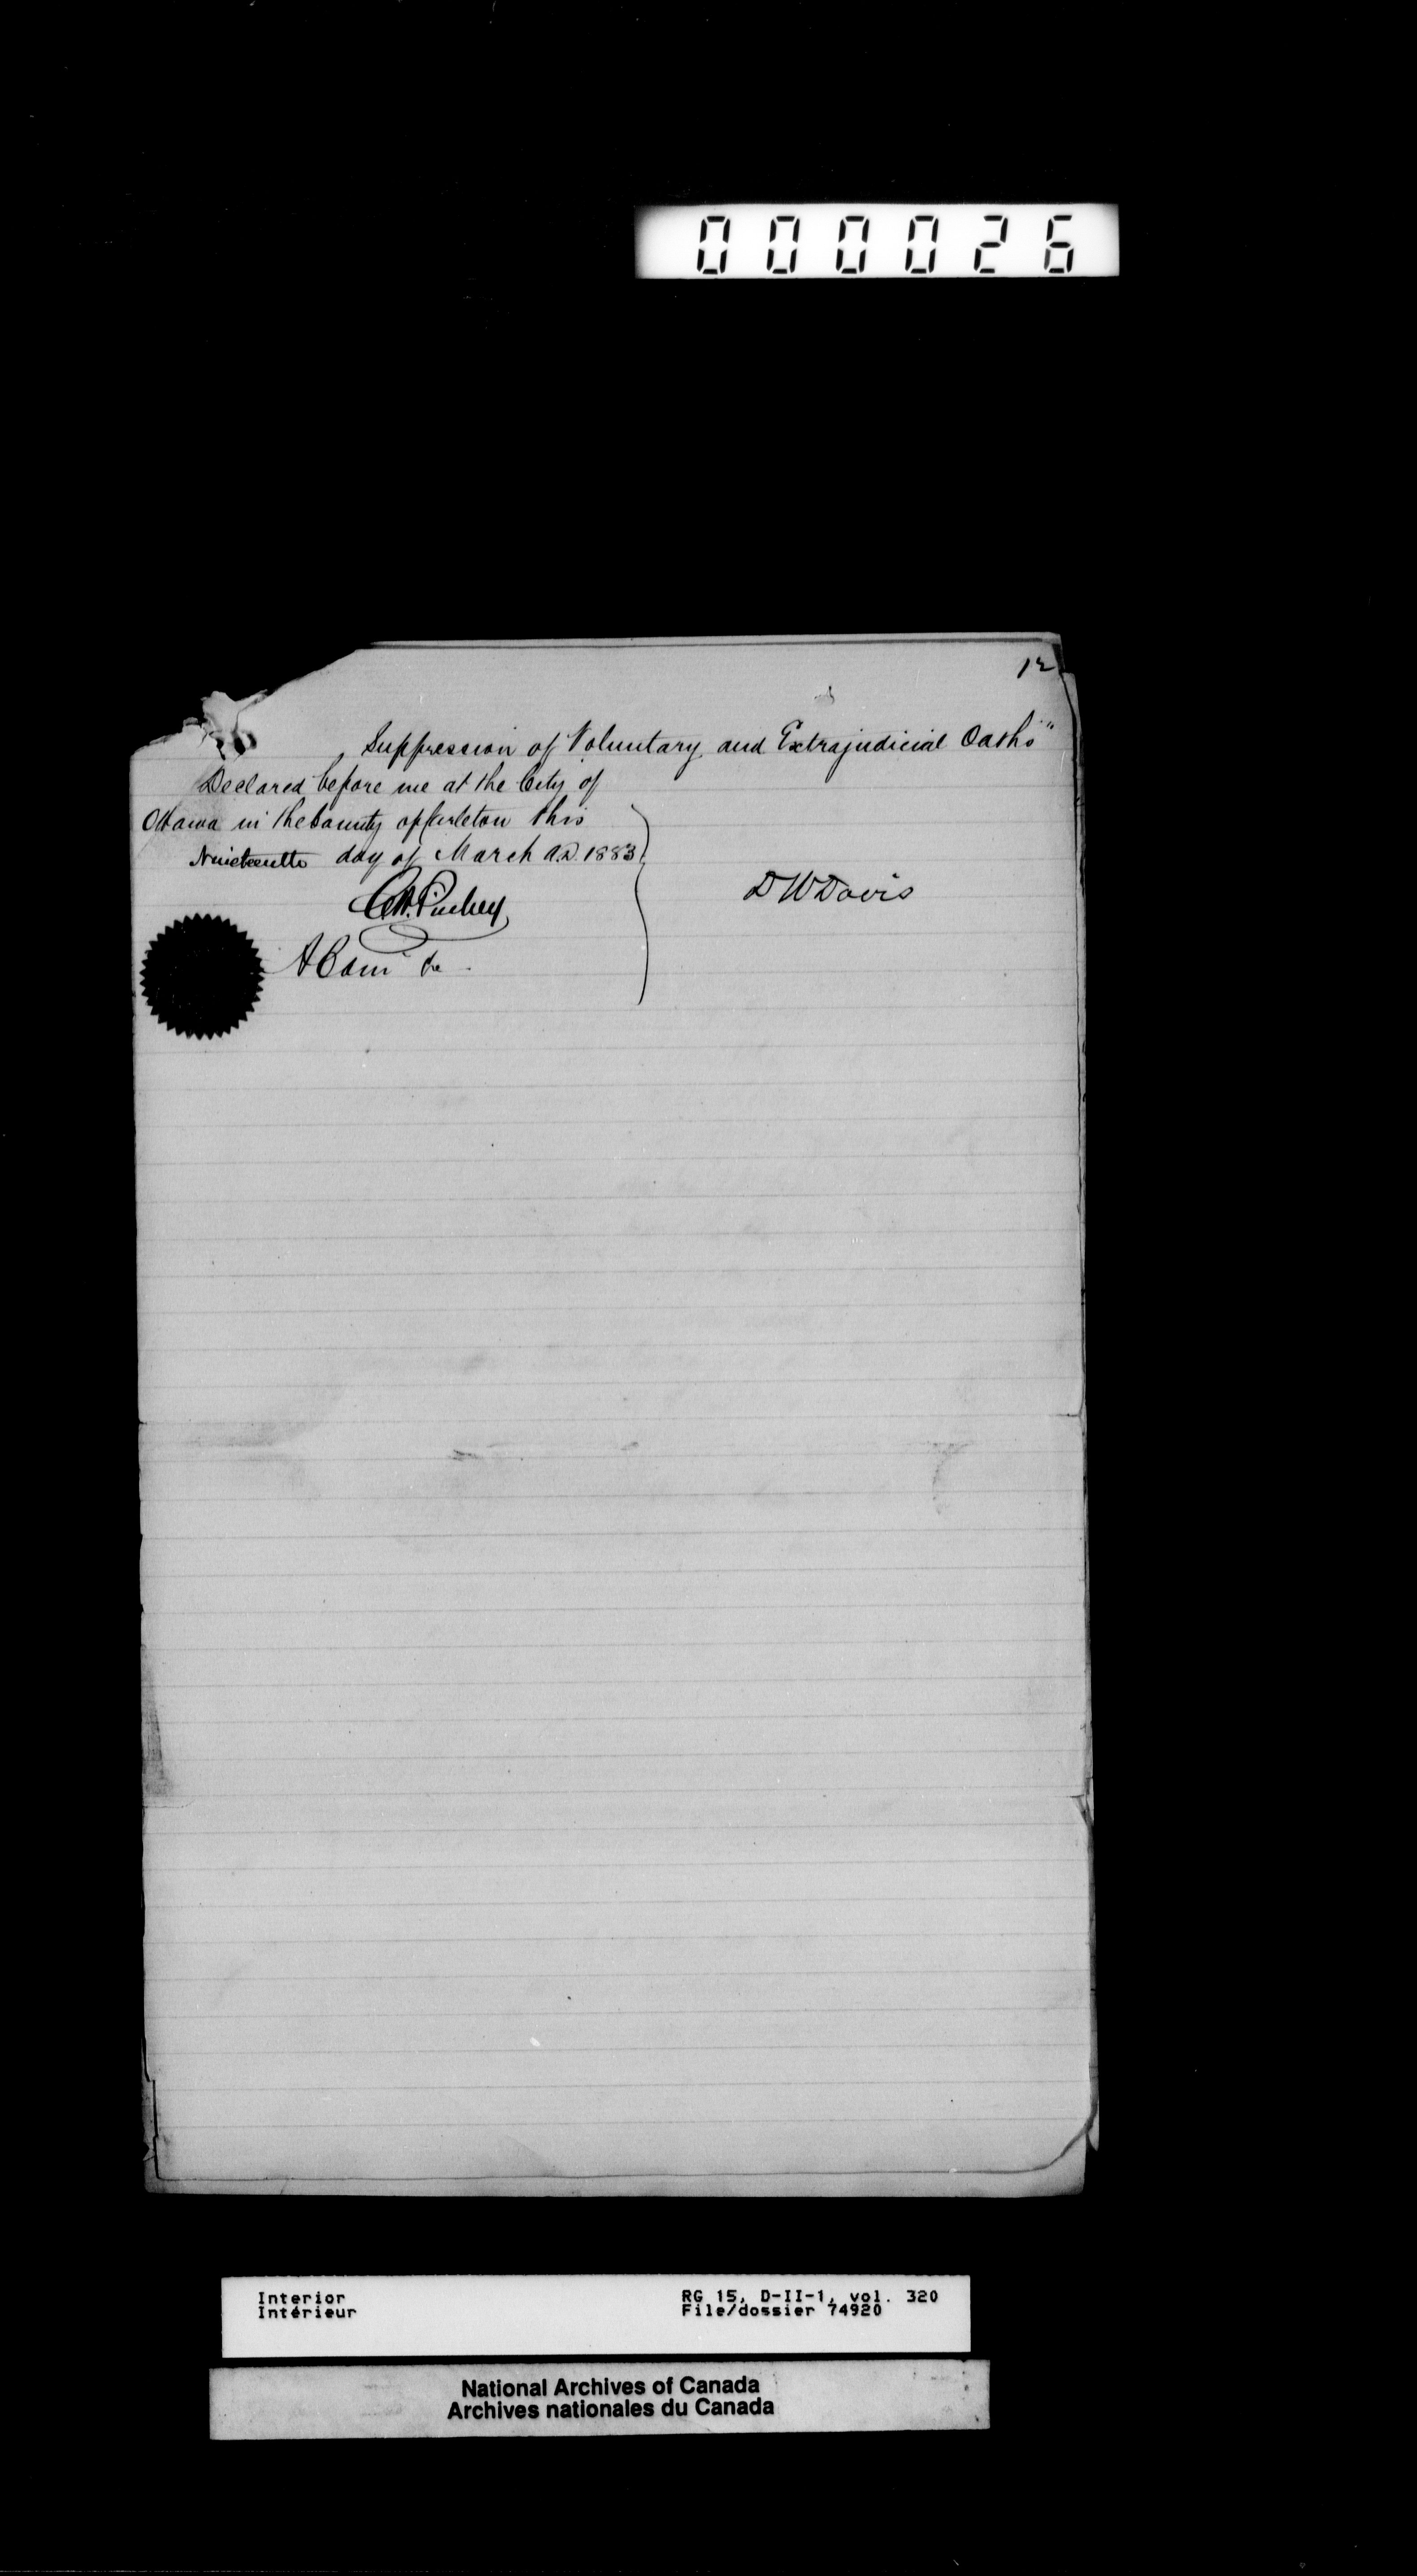 000026
12
Suppression of Voluntary and Extrajudicial Oaths"
Declared before me at the City of
Ottawa in the County of Carleton this
Nineteenth day of March A.D. 1883
D W Davis
A Com &c
Interior
Intérieur
RG 15, D-II-1, vol. 320
File/dossier 74920
National Archives of Canada
Archives nationales du Canada